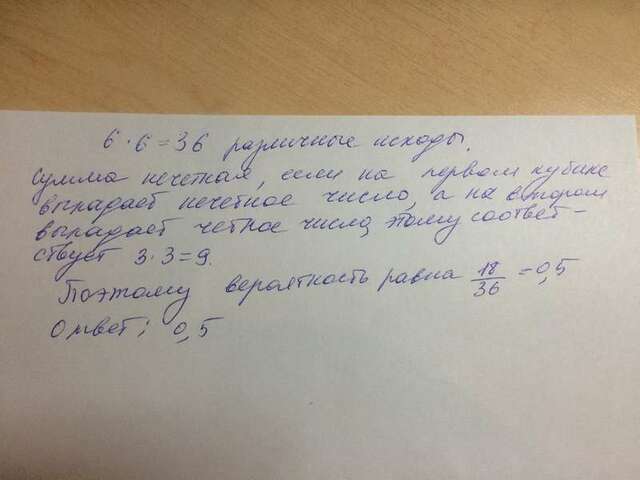 6·6=36 различные исходы.
Сумма нечетная, если на первом кубике
выпадает нечетное число, а на втором
выпадает четное число, этому соответ-
ствует 3·3=9.
Поэтому вероятность равна 18/36 = 0,5
Ответ: 0,5